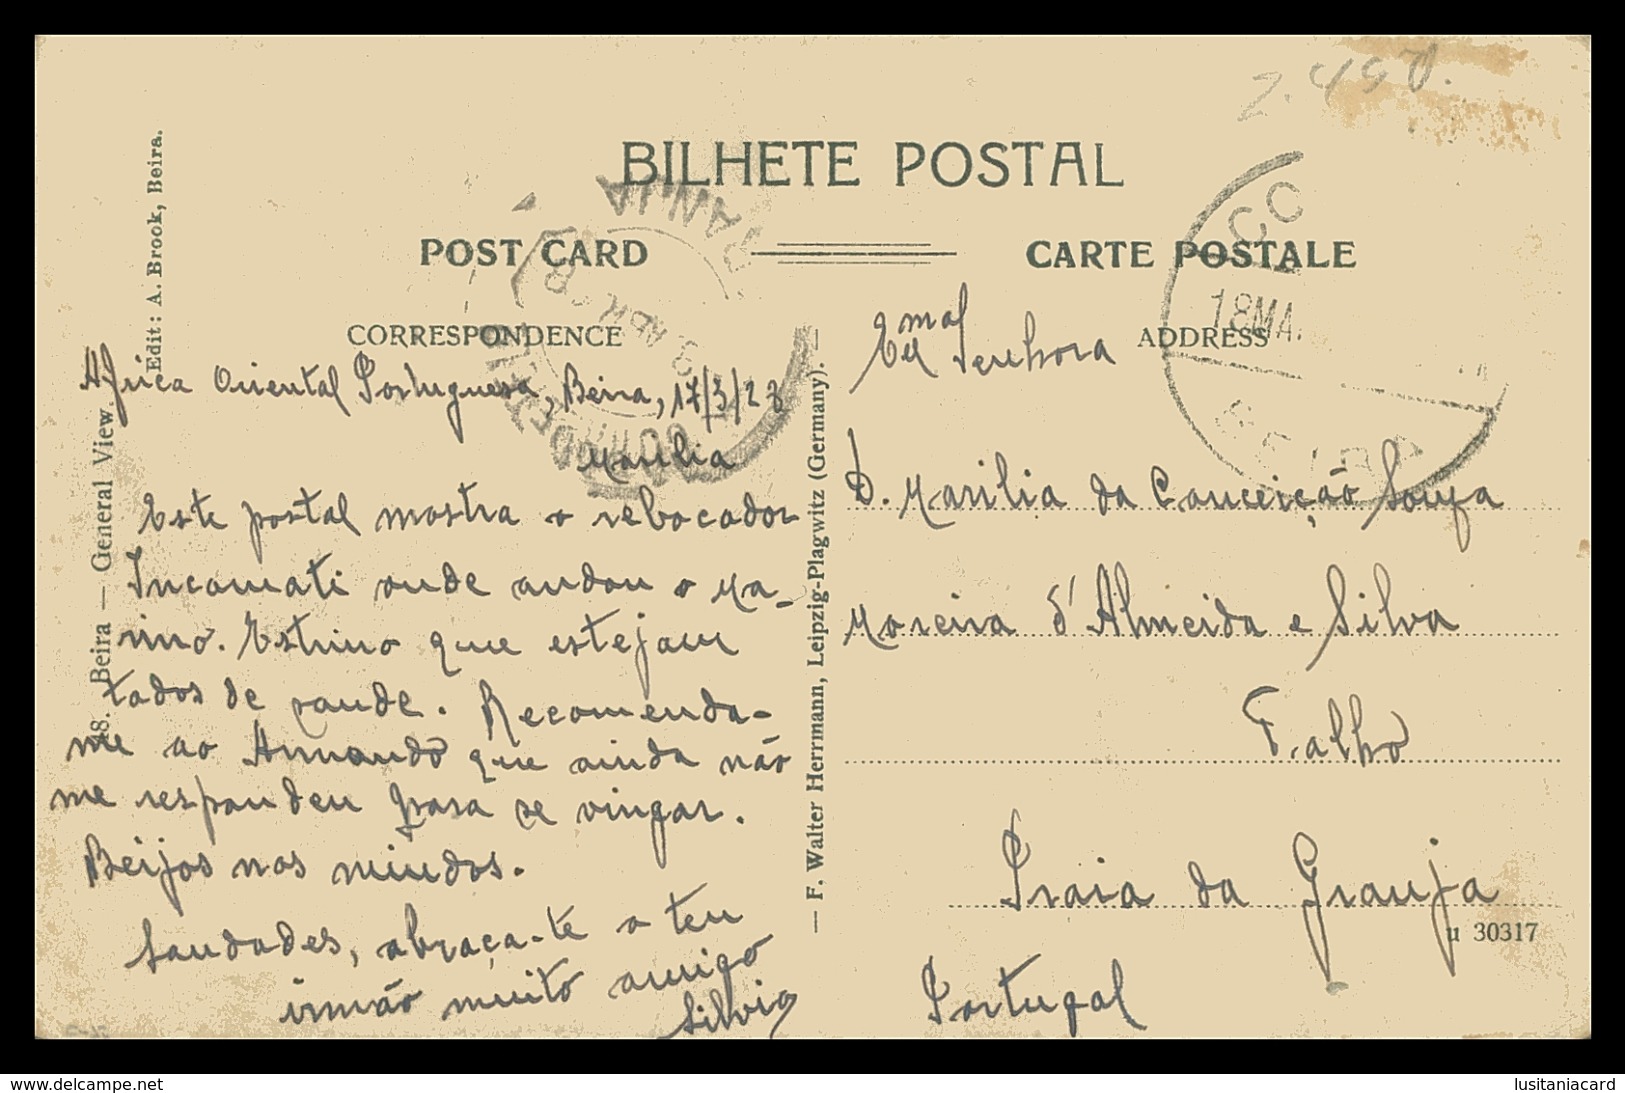 2.450.
BILHETE POSTAL
POST CARD
CARTE POSTALE
CORRESPONDENCE
ADDRESS
Edit: A. Brook, Beira.
Beira — General View.
— F. Walter Herrmann, Leipzig-Plagwitz (Germany). —
18 MA.
BEIRA
Africa Oriental Portuguesa, Beira, 17/3/23
Marilia
Este postal mostra o rebocador
Incomati onde andou o Ma-
rino. Estimo que estejam
todos de saude. Recomenda-
me ao Armando que ainda não
me respondeu para se vingar.
Beijos nos miudos.
Saudades, abraça-te o teu
irmão muito amigo
Silvio
Senhora
D. Marilia da Conceição Souza
Moreira d'Almeida e Silva
Fialho
Praia da Granja
u 30317
Portugal
www.delcampe.net
lusitaniacard